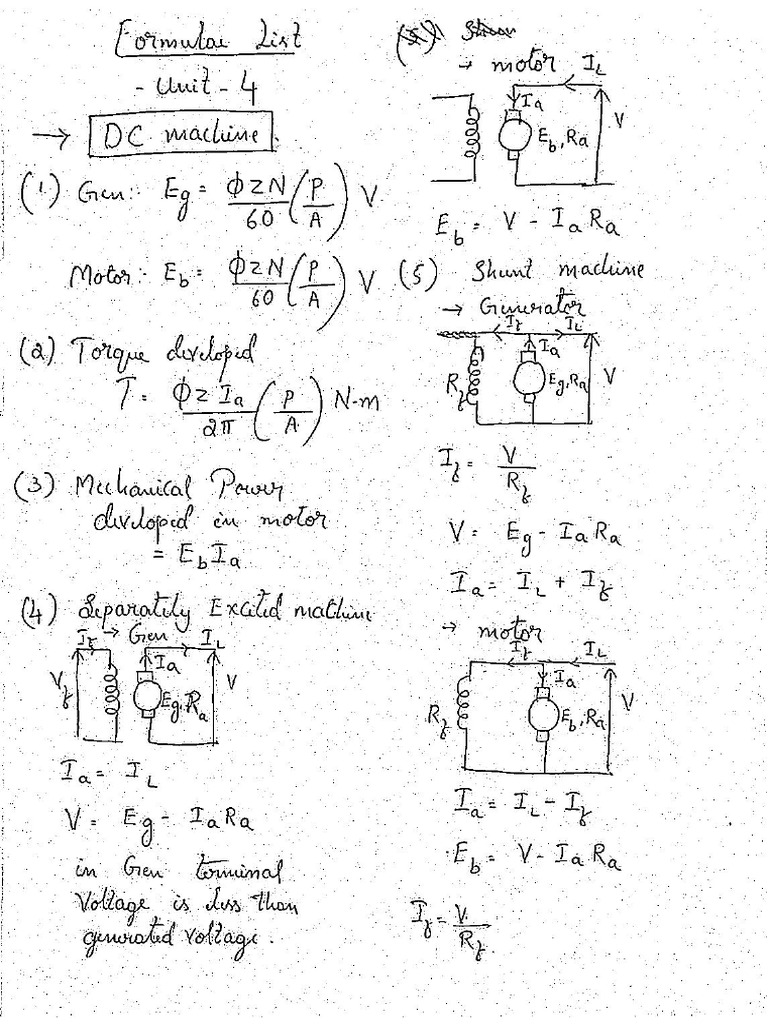 Formulae List
- Unit - 4
→ DC machine.
(1) Gen:- Eg = ϕZN/60 (P/A) V
Motor:- Eb = ϕZN/60 (P/A) V
(2) Torque developed
T = ϕZ Ia/2π (P/A) N-m
(3) Mechanical Power
developed in motor
= EbIa
(4) Separately Excited machine
→ Gen
If
IL
Ia
Vf
Eg, Ra
V
Ia = IL
V = Eg - IaRa
in Gen terminal
Voltage is less than
generated voltage.
(5) Shun
→ motor
IL
Ia
Eb, Ra
V
Eb = V - IaRa
(5) Shunt machine
→ Generator
If
IL
Ia
Rf
Eg, Ra
V
If = V/Rf
V = Eg - IaRa
Ia = IL + If
→ motor
If
IL
Ia
Rf
Eb, Ra
V
Ia = IL - If
Eb = V - IaRa
If = V/Rf